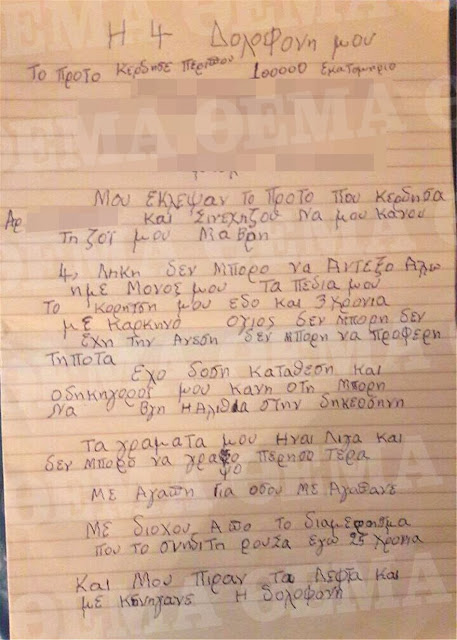 Η 4 Δολοφονη μου
Το Προτο κερδησε Περιπου 100000 εκατομηριο
Μου Εκλεψαν το Προτο που κερδησα
Αρ και Σινεχηζου Να μου κανου
Τη ζοϊ μου Μαβρη
4, Ληκη δεν Μπορο να Αντεξο Αλω
ημε Μονος μου Τα Πεδια μου
Το κορητση μου εδο και 3 χρονια
με καρκηνο ογιος δεν Μπορη δεν
Εχη την Ανεση δεν Μπορη να προφερη
τηποτα
Εχο δοση καταθεση και
οδηκηγορος μου κανη οτη Μπορη
Να Βγη Η Αληθια στην δηκεοσηνη
Τα γραματα μου Ηναι Λιγα και
δεν Μπορο να γραψο Περησο τερα
ψο
Με Αγαπη Για οσου με Αγαπανε
Με διοχου Απο το διαμερησμα
που το σηνδιτη ρουσα εγω 25 χρονια
Και Μου Πιραν τα Λεφτα και
με κηνηγανε Η δολοφονη
ΘΕΜΑ ΘΕΜΑ ΘΕΜΑ